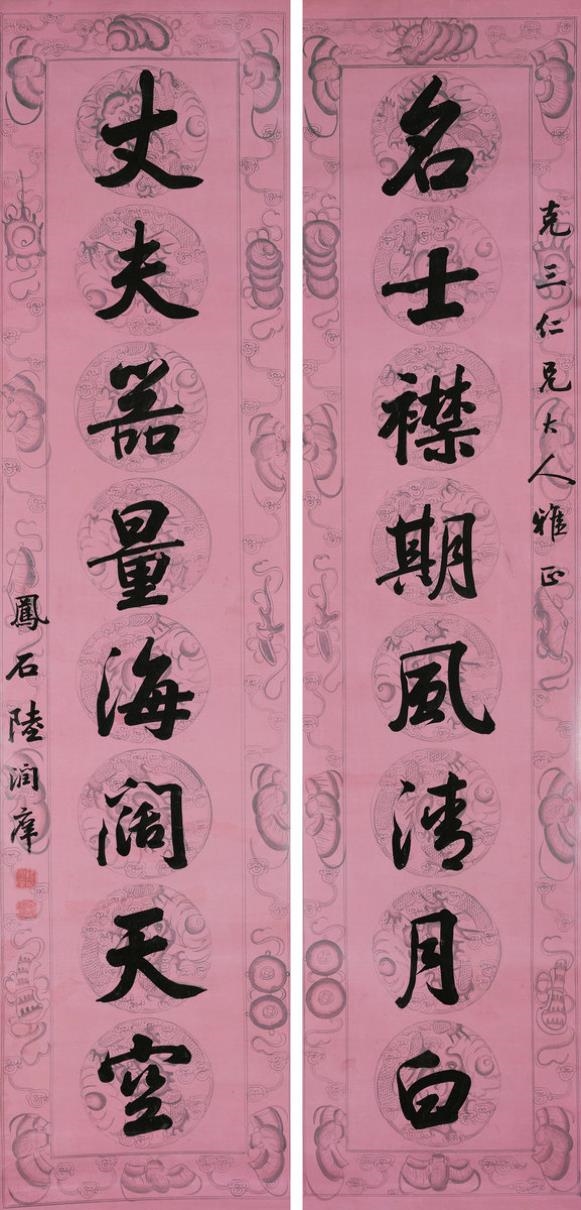 克三仁兄大人雅正
名士襟期風清月白
丈夫器量海阔天空
鳳石陸润庠